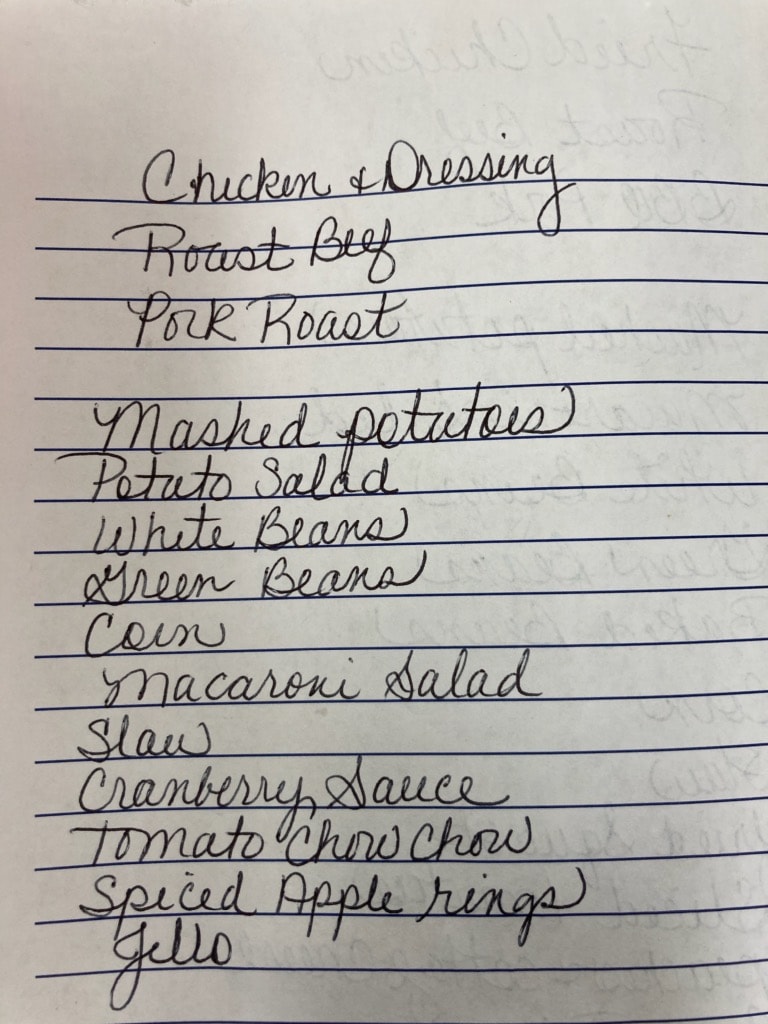 Chicken & Dressing
Roast Beef
Pork Roast
Mashed potatoes
Potato Salad
White Beans
Green Beans
Corn
Macaroni Salad
Slaw
Cranberry Sauce
Tomato Chow Chow
Spiced Apple rings
Jello